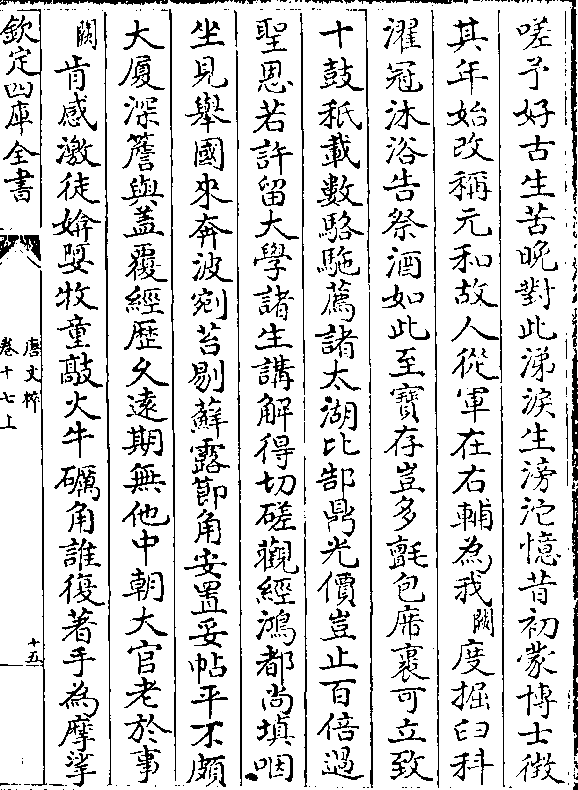 嗟予好古生苦晚對此涕淚生滂沱憶昔初蒙博士徴
其年始改稱元和故人從軍在右輔為我闕度掘臼科
濯冠沐浴告祭酒如此至寶存豈多氈包席裹可立致
十鼓秪載數駱駞薦諸太湖比郜鼎光價豈止百倍過
聖恩若許留大學諸生講解得切磋觀經鴻都尚填咽
坐見舉國來奔波剜苔剔蘚露節角安置妥帖平不頗
大厦深簷與盖覆經歴久遠期無他中朝大官老於事
闕肯感激徒媕娿牧童敲火牛礪角誰復著手為摩挲
欽定四庫全書
唐文粹
卷十七上
十五